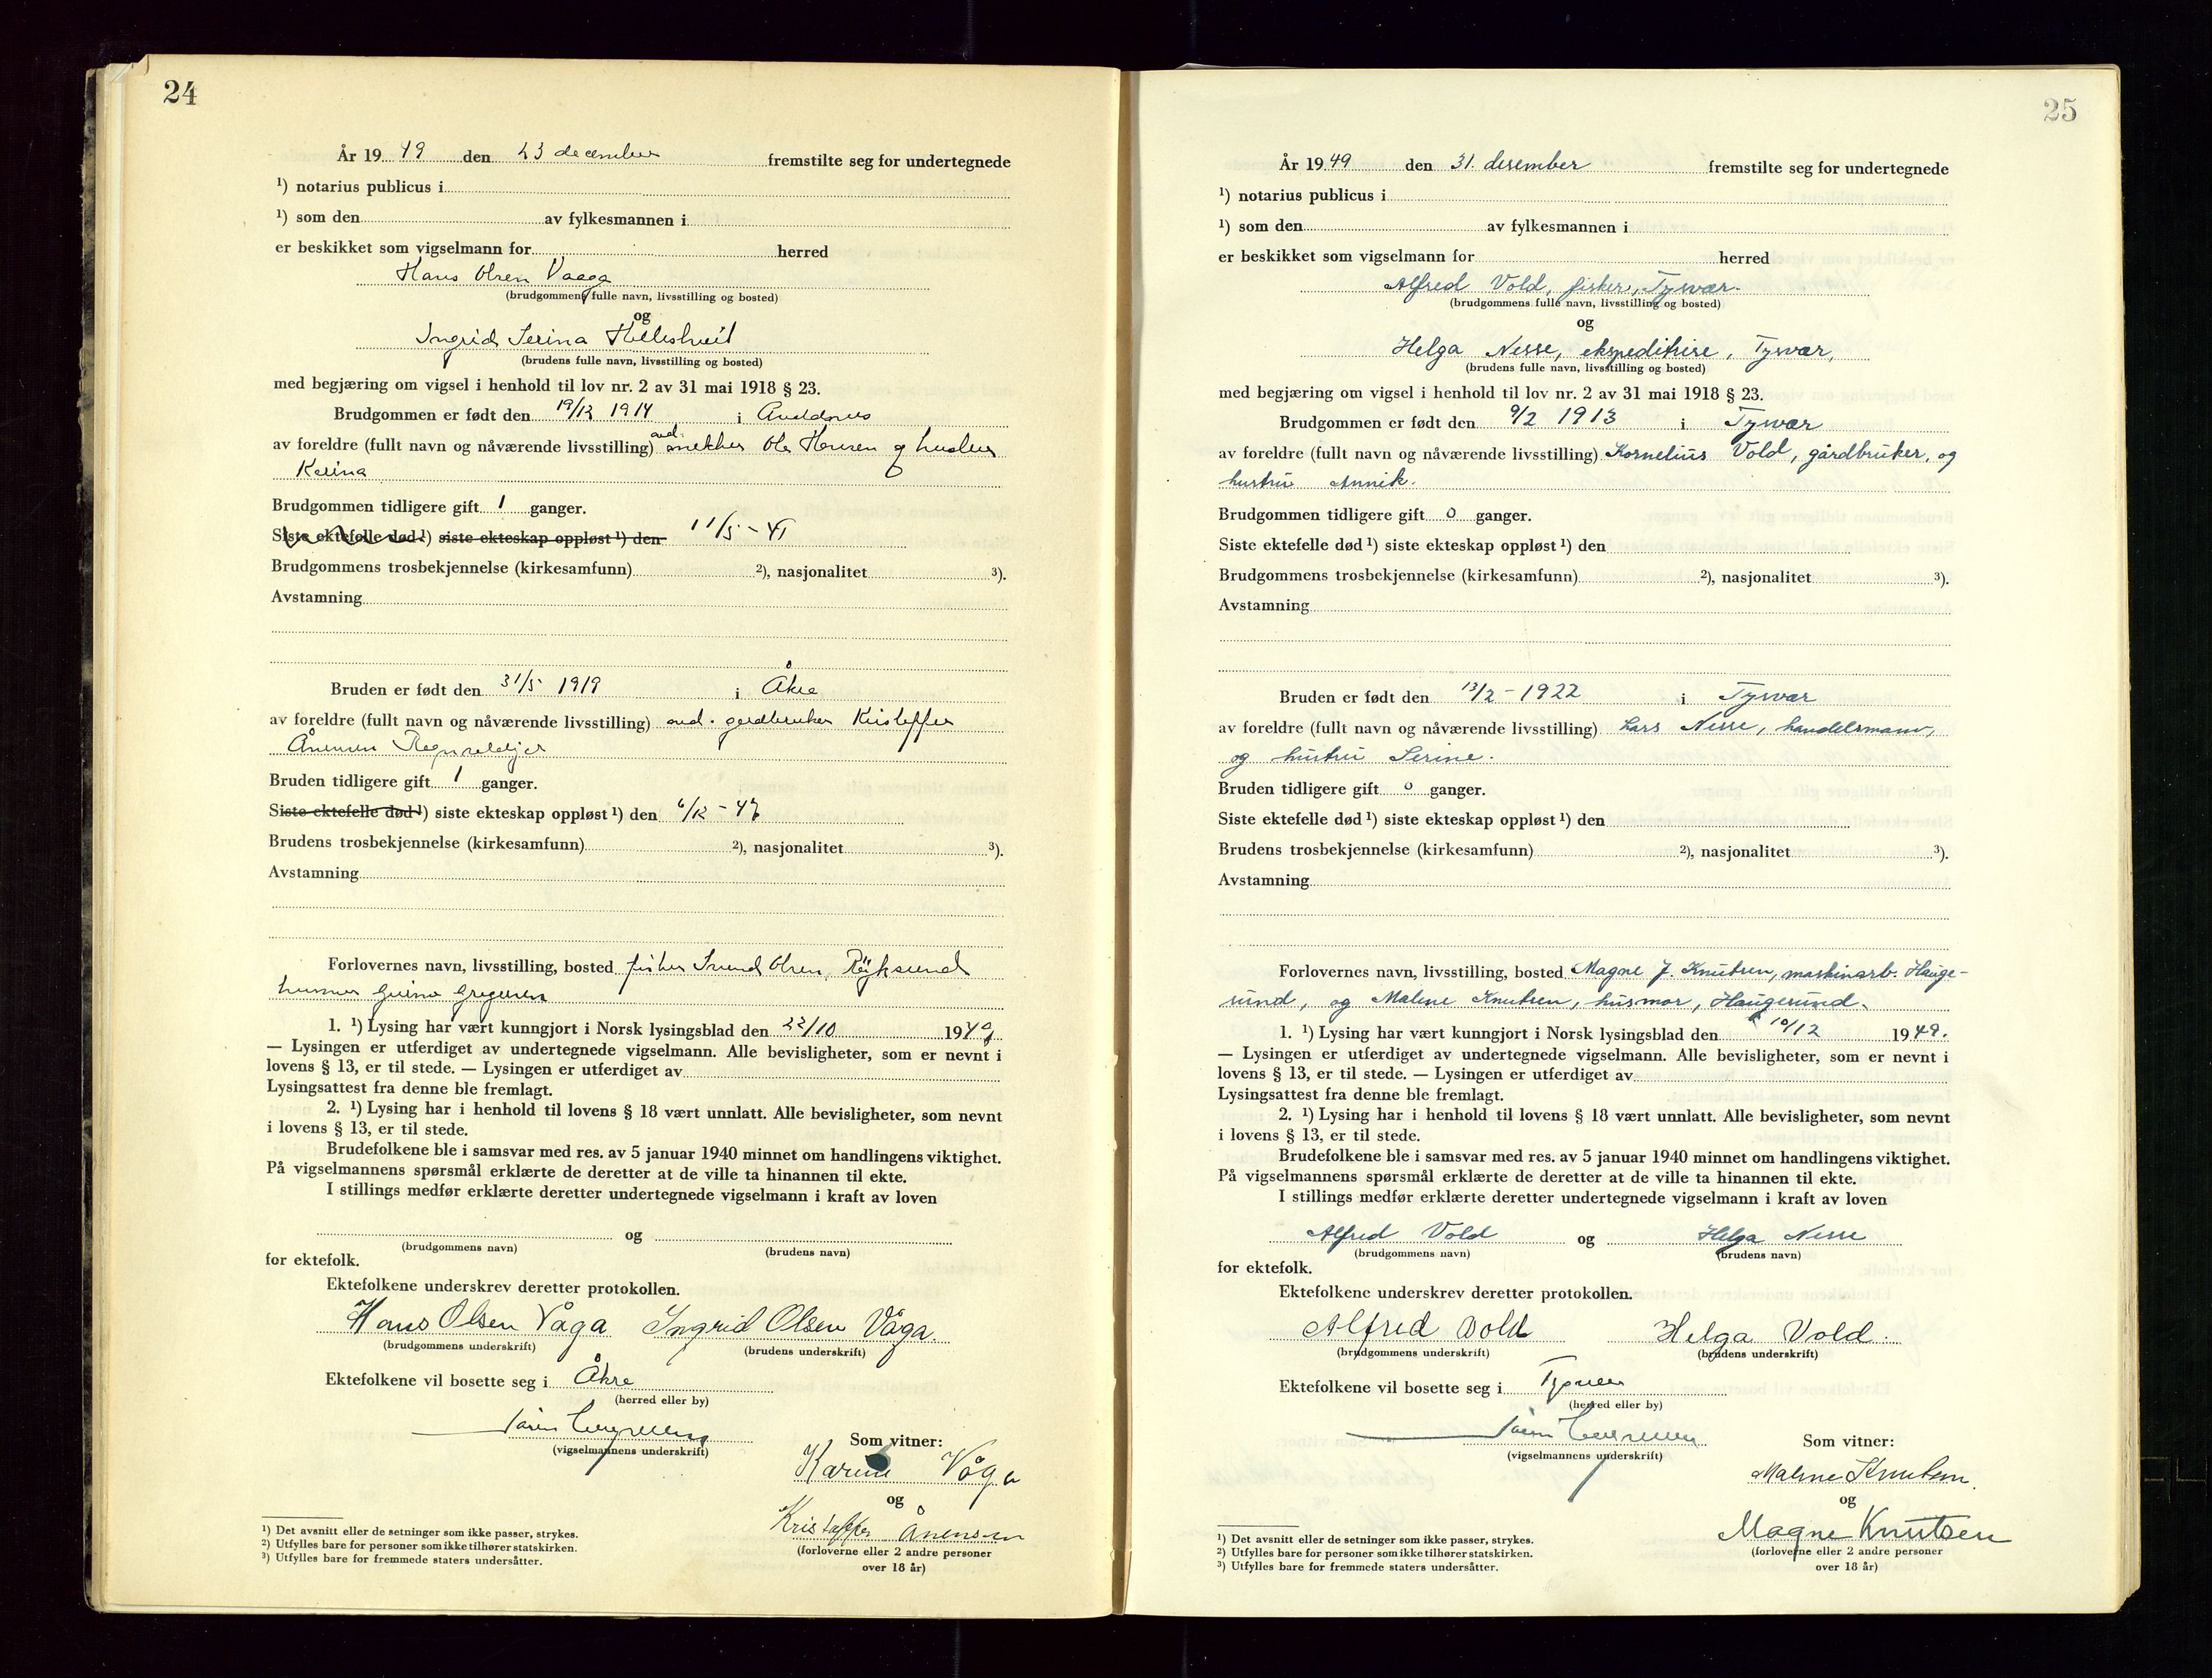 24
År 19 49 den 23 december fremstilte seg for undertegnede
¹) notarius publicus i
¹) som den av fylkesmannen i
er beskikket som vigselmann for herred
Hans Olsen Vaaga
(brudgommens fulle navn, livsstilling og bosted)
og
Ingrid Serina
(brudens fulle navn, livsstilling og bosted)
med begjæring om vigsel i henhold til lov nr. 2 av 31 mai 1918 § 23.
Brudgommen er født den 19/12 1914 i
av foreldre (fullt navn og nåværende livsstilling) Ole Hansen og hustru
Karina
Brudgommen tidligere gift 1 ganger.
Siste ektefelle død ¹) siste ekteskap oppløst ¹) den 11/5 - 41
Brudgommens trosbekjennelse (kirkesamfunn) ²), nasjonalitet ³).
Avstamning
Bruden er født den 31/5 1919 i Åkre
av foreldre (fullt navn og nåværende livsstilling) avd. gardbruker Kristoffer
Ånensen
Bruden tidligere gift 1 ganger.
Siste ektefelle død ¹) siste ekteskap oppløst ¹) den 6/12 - 47
Brudens trosbekjennelse (kirkesamfunn) ²), nasjonalitet ³).
Avstamning
Forlovernes navn, livsstilling, bosted fisker Svend Olsen, Røyksund
1. ¹) Lysing har vært kunngjort i Norsk lysingsblad den 22/10 1949
— Lysingen er utferdiget av undertegnede vigselmann. Alle bevisligheter, som er nevnt i
lovens § 13, er til stede. — Lysingen er utferdiget av
Lysingsattest fra denne ble fremlagt.
2. ¹) Lysing har i henhold til lovens § 18 vært unnlatt. Alle bevisligheter, som nevnt
i lovens § 13, er til stede.
Brudefolkene ble i samsvar med res. av 5 januar 1940 minnet om handlingens viktighet.
På vigselmannens spørsmål erklærte de deretter at de ville ta hinannen til ekte.
I stillings medfør erklærte deretter undertegnede vigselmann i kraft av loven
og
(brudgommens navn) (brudens navn)
for ektefolk.
Ektefolkene underskrev deretter protokollen.
Hans Olsen Våga Ingrid Olsen Våga.
(brudgommens underskrift) (brudens underskrift)
Ektefolkene vil bosette seg i Åkre
(herred eller by)
(vigselmannens underskrift)
Som vitner:
Karina Våga
og
Kristoffer Ånensen
(forloverne eller 2 andre personer
over 18 år)
¹) Det avsnitt eller de setninger som ikke passer, strykes.
²) Utfylles bare for personer som ikke tilhører statskirken.
³) Utfylles bare for fremmede staters undersåtter.
25
År 19 49 den 31. desember fremstilte seg for undertegnede
¹) notarius publicus i
¹) som den av fylkesmannen i
er beskikket som vigselmann for herred
Alfred Vold, fisker, Tysvær.
(brudgommens fulle navn, livsstilling og bosted)
og
Helga Nesse, ekspeditrise, Tysvær,
(brudens fulle navn, livsstilling og bosted)
med begjæring om vigsel i henhold til lov nr. 2 av 31 mai 1918 § 23.
Brudgommen er født den 9/2 1913 i Tysvær
av foreldre (fullt navn og nåværende livsstilling) Kornelius Vold, gårdbruker, og
hustru Annik.
Brudgommen tidligere gift 0 ganger.
Siste ektefelle død ¹) siste ekteskap oppløst ¹) den
Brudgommens trosbekjennelse (kirkesamfunn) ²), nasjonalitet ³).
Avstamning
Bruden er født den 13/2 - 1922 i Tysvær
av foreldre (fullt navn og nåværende livsstilling) Lars Nesse, handelsmann,
og hustru Serine.
Bruden tidligere gift 0 ganger.
Siste ektefelle død ¹) siste ekteskap oppløst ¹) den
Brudens trosbekjennelse (kirkesamfunn) ²), nasjonalitet ³).
Avstamning
Forlovernes navn, livsstilling, bosted Magne J. Knutsen, maskinarb. Hauge-
sund, og Malene Knutsen, husmor, Haugesund.
1. ¹) Lysing har vært kunngjort i Norsk lysingsblad den 10/12 1949.
— Lysingen er utferdiget av undertegnede vigselmann. Alle bevisligheter, som er nevnt i
lovens § 13, er til stede. — Lysingen er utferdiget av
Lysingsattest fra denne ble fremlagt.
2. ¹) Lysing har i henhold til lovens § 18 vært unnlatt. Alle bevisligheter, som nevnt
i lovens § 13, er til stede.
Brudefolkene ble i samsvar med res. av 5 januar 1940 minnet om handlingens viktighet.
På vigselmannens spørsmål erklærte de deretter at de ville ta hinannen til ekte.
I stillings medfør erklærte deretter undertegnede vigselmann i kraft av loven
Alfred Vold og Helga Nesse
(brudgommens navn) (brudens navn)
for ektefolk.
Ektefolkene underskrev deretter protokollen.
Alfred Vold Helga Vold.
(brudgommens underskrift) (brudens underskrift)
Ektefolkene vil bosette seg i Tysvær
(herred eller by)
(vigselmannens underskrift)
Som vitner:
Malene Knutsen.
og
Magne Knutsen
(forloverne eller 2 andre personer
over 18 år)
¹) Det avsnitt eller de setninger som ikke passer, strykes.
²) Utfylles bare for personer som ikke tilhører statskirken.
³) Utfylles bare for fremmede staters undersåtter.